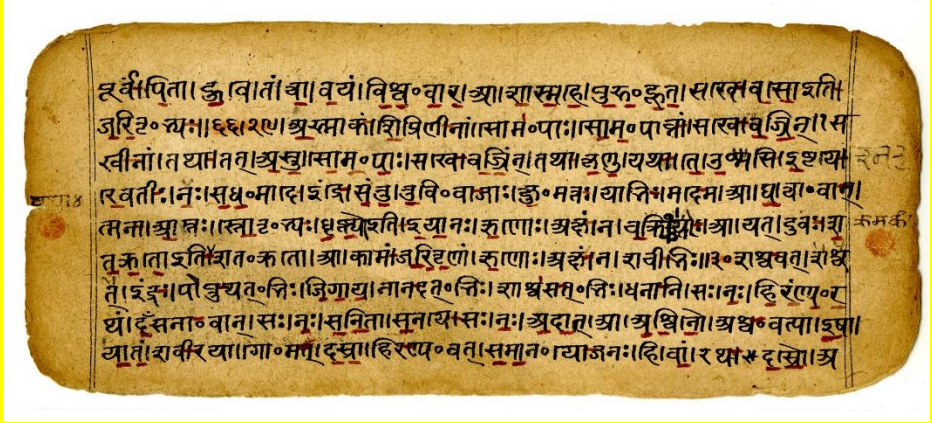 पूर्वं।पिता।हुवे।तं।त्वा।वयं।विश्व॰वार।आ।शास्महे।पुरु॰हूत।सखे।वसो इति।
जरितृ॰भ्यः॥२९॥अस्माकं।शिप्रिणीनां।सोम॰पाः।सोम॰पाव्नां।सखे।वज्रिन्।स
खीनां।तथा।तत्।अस्तु।सोम॰पाः।सखे।वज्रिन्।तथा।कृणु।यथा।ते।उश्मसि।इष्टये।
रेवतीः।नः।सध॰मादे।इंद्रे।संतु।तुवि॰वाजाः।क्षु॰मंतः।याभिः।मदेम।आ।घ।त्वा॰वान्।
त्मना।आप्तः।स्तोतृ॰भ्यः।धृष्णो इति।इयानः।ऋणोः।अक्षं।न।चक्र्योः।आ।यत्।दुवः।श
तक्रतो इति शत॰क्रतो।आ।कामं।जरितॄणां।ऋणोः।अक्षं।न।शचीभिः॥३०॥शश्वत्
इंद्रः।पोप्रुथत्॰भिः।जिगाय।नानदत्॰भिः।शाश्वसत्॰भिः।धनानि।सः।नः।हिरण्य॰र
थं।दंसना॰वान्।सः।नः।सनिता।सनये।सः।नः।अदात्।आ।अश्विनौ।अश्व॰वत्या।इषा।
यातं।शवीरया।गो॰मत्।दस्रा।हिरण्य॰वत्।समान॰योजनः।हि।वां।रथः।दस्रौ।अ